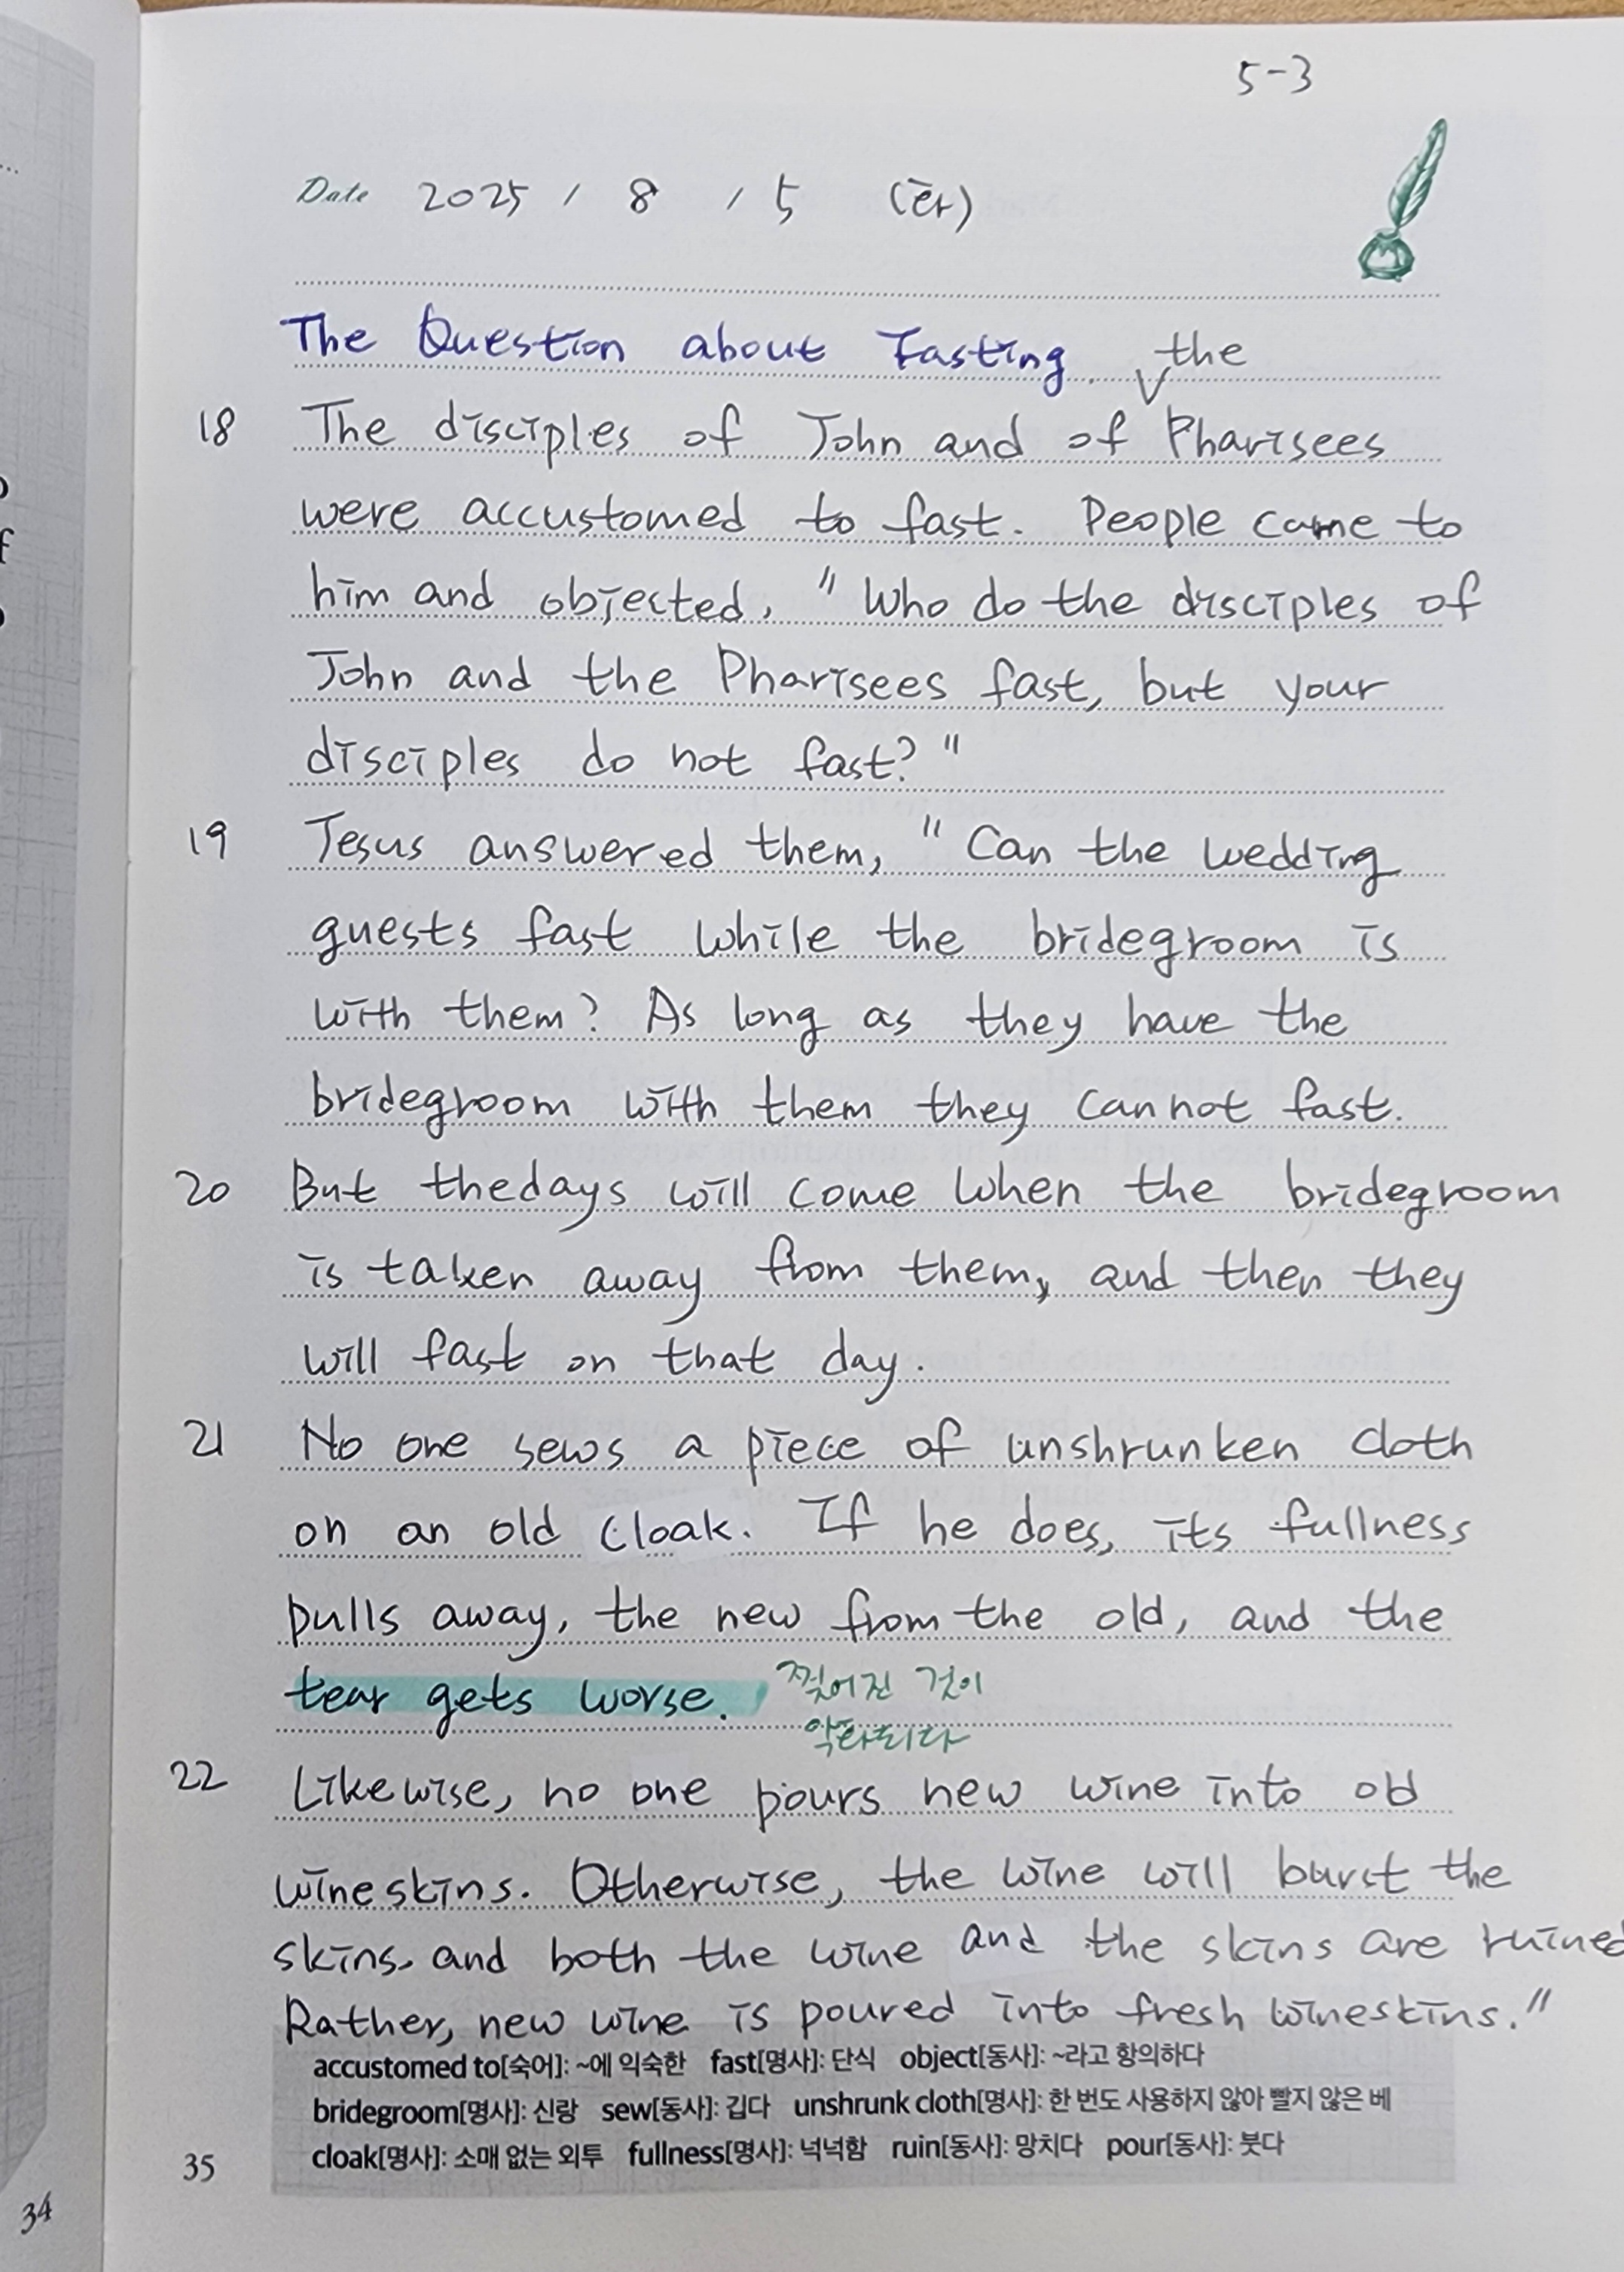 5-3
Date 2025 / 8 / 5 (화)
The Question about Fasting.
the
18 The disciples of John and of Pharisees
were accustomed to fast. People came to
him and objected, "Who do the disciples of
John and the Pharisees fast, but your
disciples do not fast?"
19 Jesus answered them, "Can the wedding
guests fast while the bridegroom is
with them? As long as they have the
bridegroom with them they cannot fast.
20 But the days will come when the bridegroom
is taken away from them, and then they
will fast on that day.
21 No one sews a piece of unshrunken cloth
on an old cloak. If he does, its fullness
pulls away, the new from the old, and the
tear gets worse. 찢어진 것이
악화되다
22 Likewise, no one pours new wine into old
wineskins. Otherwise, the wine will burst the
skins, and both the wine and the skins are ruined
Rather, new wine is poured into fresh wineskins."
accustomed to[숙어]: ~에 익숙한 fast[명사]: 단식 object[동사]: ~라고 항의하다
bridegroom[명사]: 신랑 sew[동사]: 깁다 unshrunk cloth[명사]: 한 번도 사용하지 않아 빨지 않은 베
cloak[명사]: 소매 없는 외투 fullness[명사]: 넉넉함 ruin[동사]: 망치다 pour[동사]: 붓다
35
34